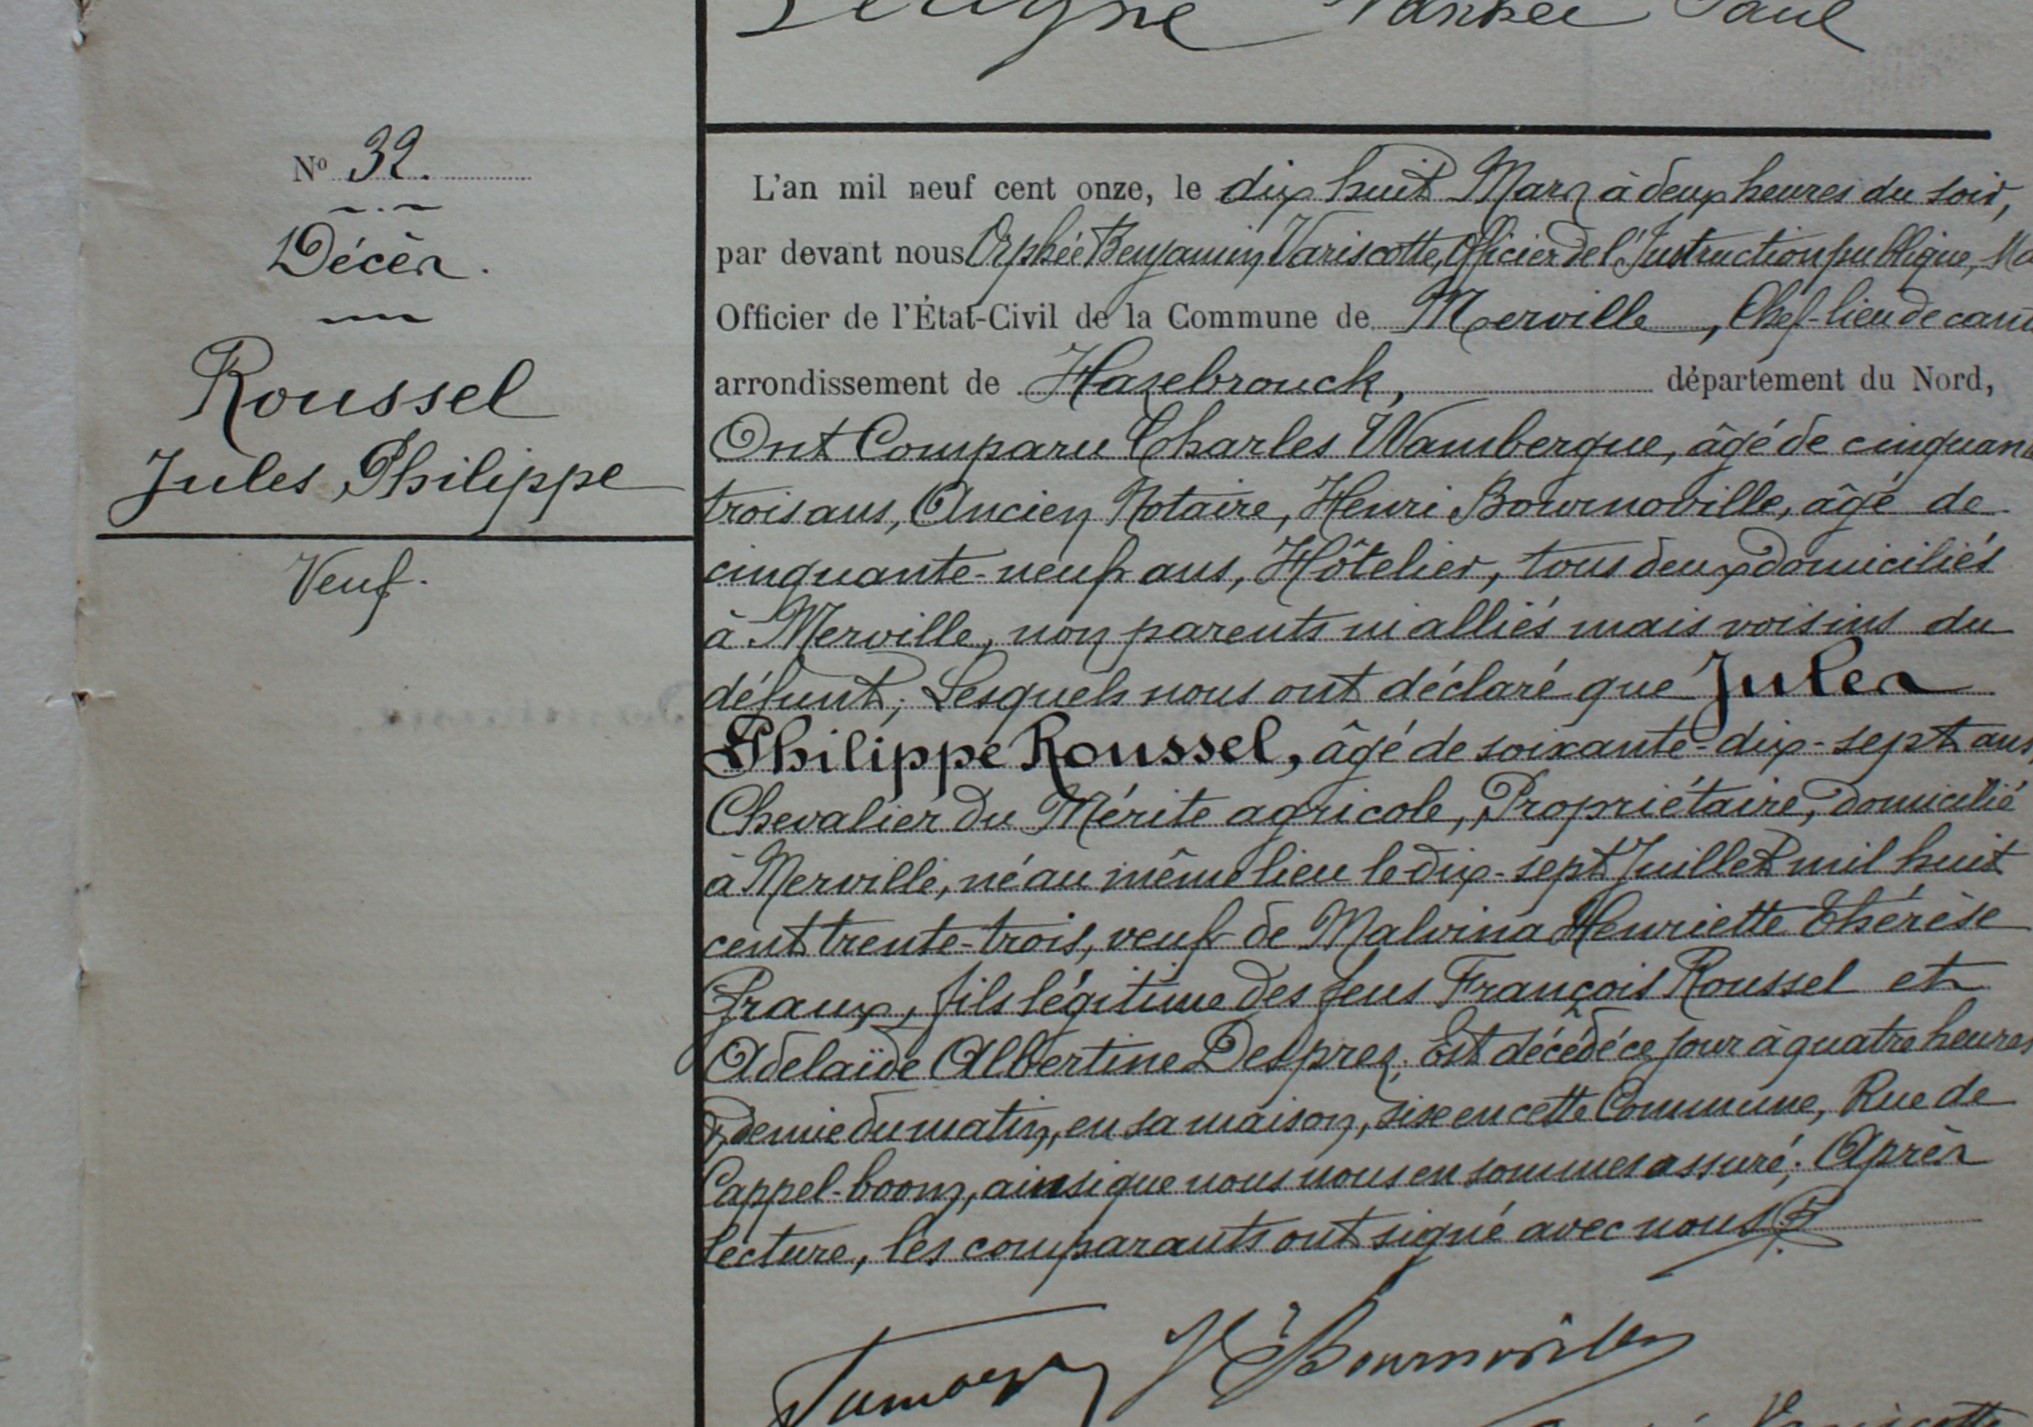 Paul
N° 32.
Décès.
Roussel
Jules, Philippe
Veuf.
L'an mil neuf cent onze, le dix huit Mars à deux heures du soir,
par devant nous Orphée Benjamin Variscotte, Officier de l'Instruction publique, Ma
Officier de l'État-Civil de la Commune de Merville, Chef-lieu de cant
arrondissement de Hazebrouck, département du Nord,
Ont Comparu Charles Wambergue, âgé de cinquan
trois ans, Ancien Notaire, Henri Bournoville, âgé de
cinquante-neuf ans, Hôtelier, tous deux domiciliés
à Merville, non parents ni alliés mais voisins du
défunt; Lesquels nous ont déclaré que Jules
Philippe Roussel, âgé de soixante-dix-sept ans,
Chevalier du Mérite agricole, Propriétaire, domicilié
à Merville, né au même lieu le dix-sept Juillet mil huit
cent trente-trois, veuf de Malvina Henriette Thérèse
Fraux, fils légitime des feus François Roussel et
Adelaïde Albertine Desprez, Est décédé ce jour à quatre heures
& demie du matin, en sa maison, sise en cette Commune, Rue de
Cappel-boom, ainsi que nous nous en sommes assuré; Après
lecture, les comparants ont signé avec nous
Hi Bournoville